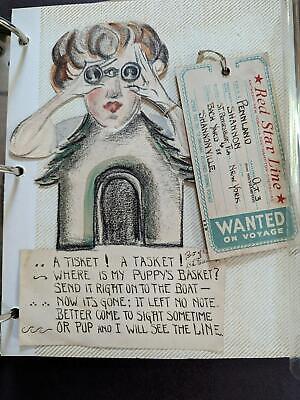 Red Star Line
PENNLAND
Oct. 3
SHANNON
NEW YORK
SHANNONVILLE
WANTED
ON VOYAGE
A TISKET! A TASKET!
WHERE IS MY PUPPY'S BASKET?
SEND IT RIGHT ON TO THE BOAT —
NOW IT'S GONE; IT LEFT NO NOTE.
BETTER COME TO SIGHT SOMETIME
OR PUP AND I WILL SEE THE LINE.